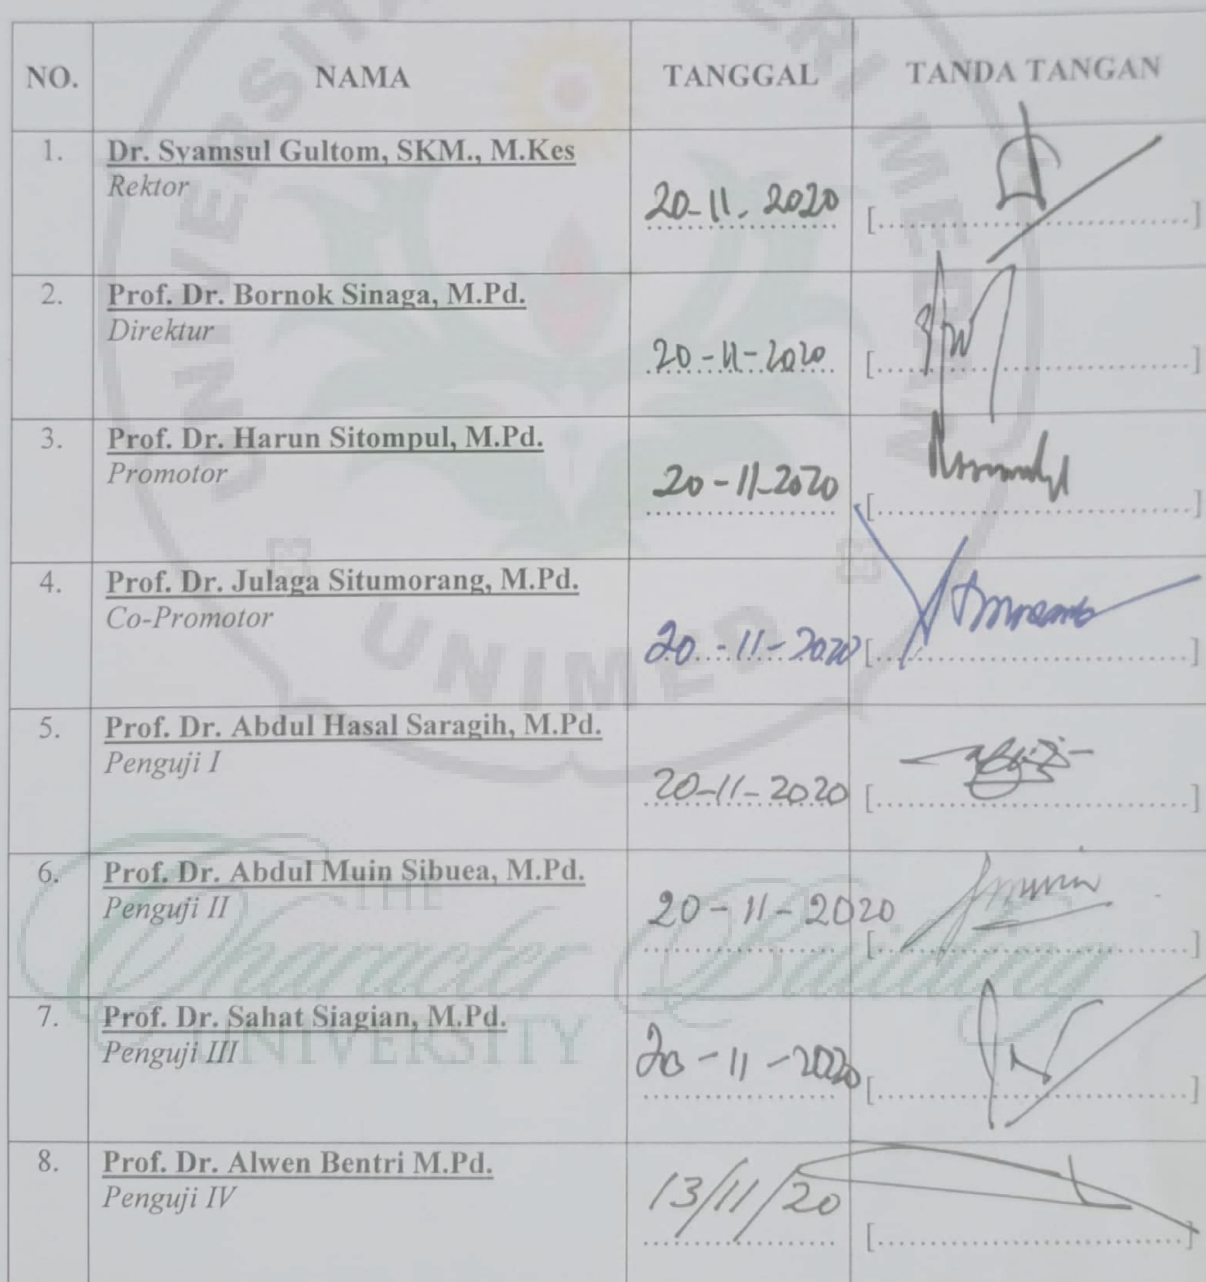 NO. NAMA TANGGAL TANDA TANGAN
1. Dr. Syamsul Gultom, SKM., M.Kes
Rektor
20-11-2020 [..............................]
2. Prof. Dr. Bornok Sinaga, M.Pd.
Direktur
20-11-2020 [..............................]
3. Prof. Dr. Harun Sitompul, M.Pd.
Promotor
20-11-2020 [..............................]
4. Prof. Dr. Julaga Situmorang, M.Pd.
Co-Promotor
20-11-2020 [..............................]
5. Prof. Dr. Abdul Hasal Saragih, M.Pd.
Penguji I
20-11-2020 [..............................]
6. Prof. Dr. Abdul Muin Sibuea, M.Pd.
Penguji II
20-11-2020 [..............................]
7. Prof. Dr. Sahat Siagian, M.Pd.
Penguji III
20-11-2020 [..............................]
8. Prof. Dr. Alwen Bentri M.Pd.
Penguji IV
13/11/20 [..............................]
UNIMED
THE
Character Building
UNIVERSITY